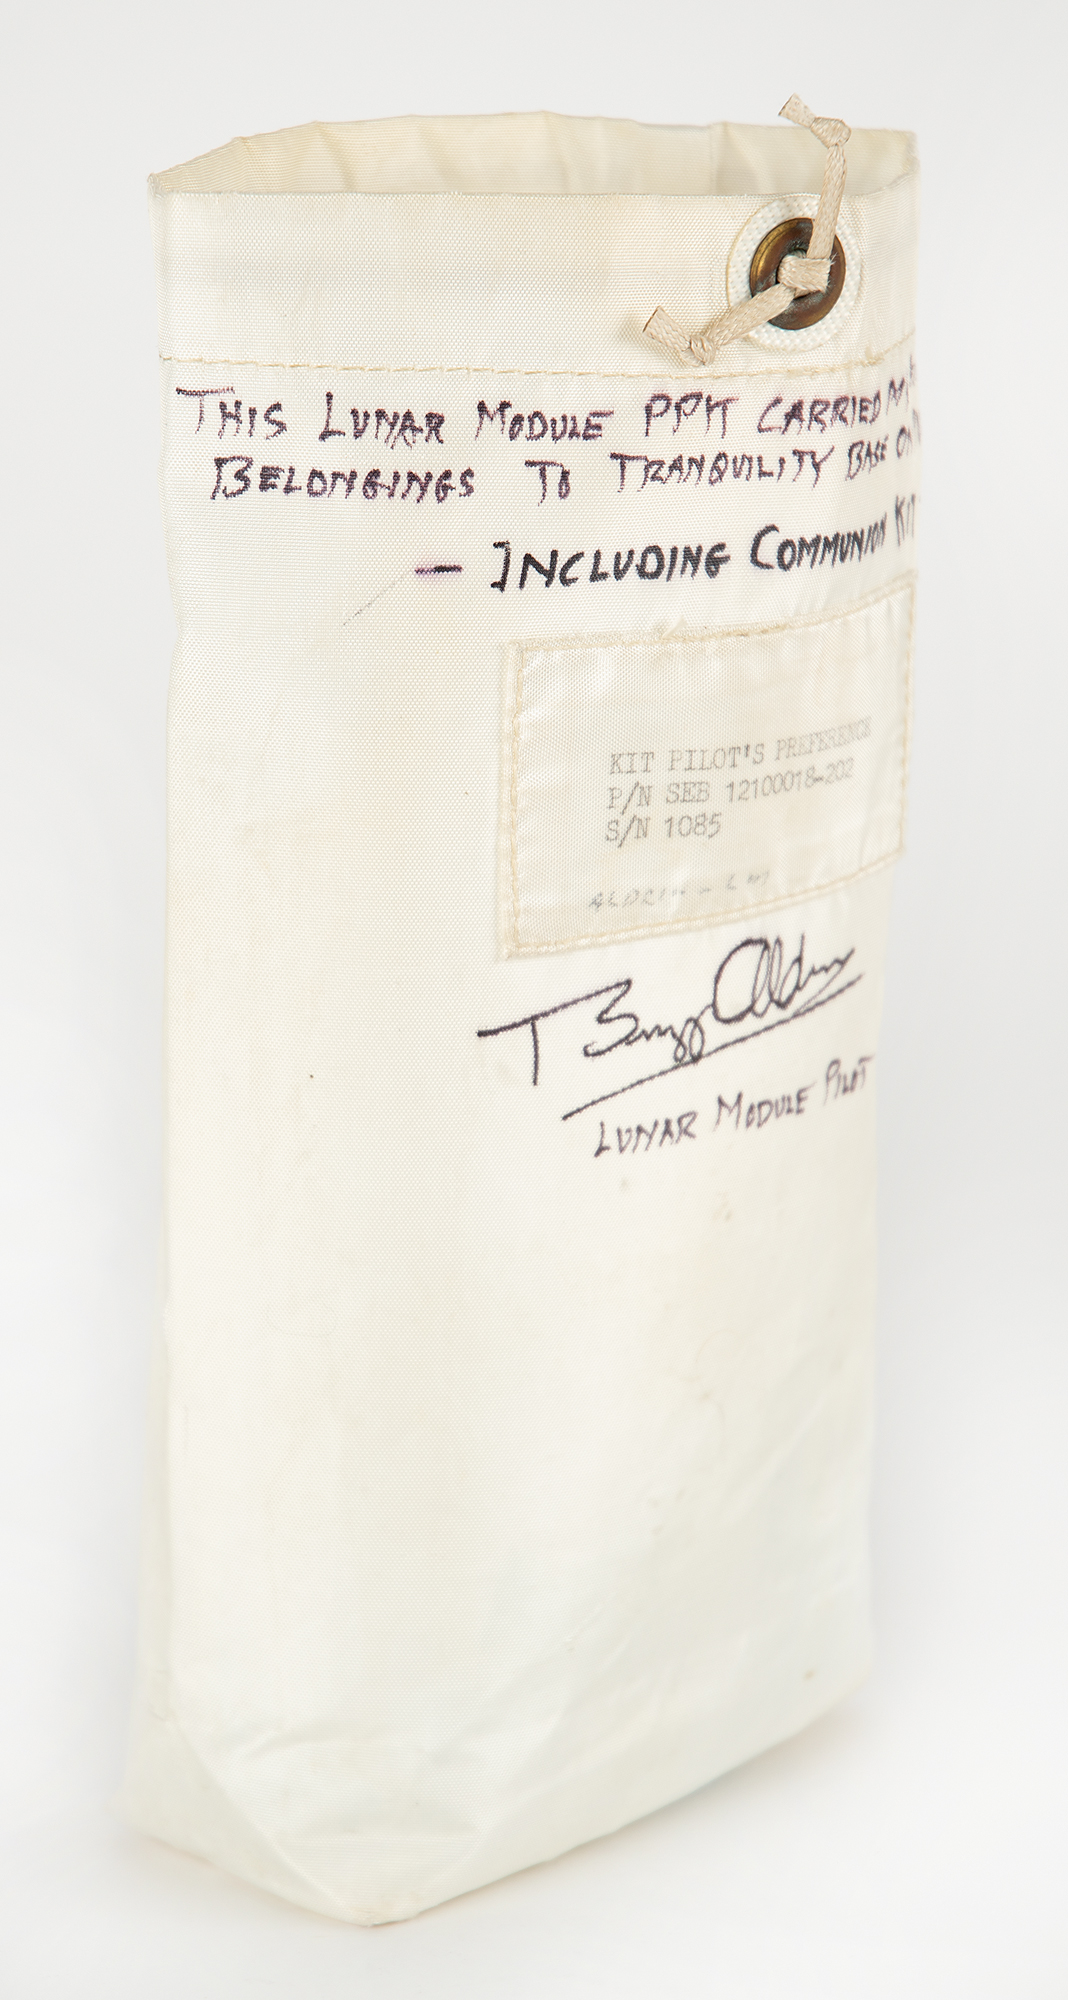 THIS LUNAR MODULE PPK CARRIED
BELONGINGS TO TRANQUILITY BASE
— INCLUDING COMMUNION KIT
KIT PILOT'S PREFERENCE
P/N SEB 12100018-202
S/N 1085
ALDRIN - LM
Buzz Aldrin
LUNAR MODULE PILOT